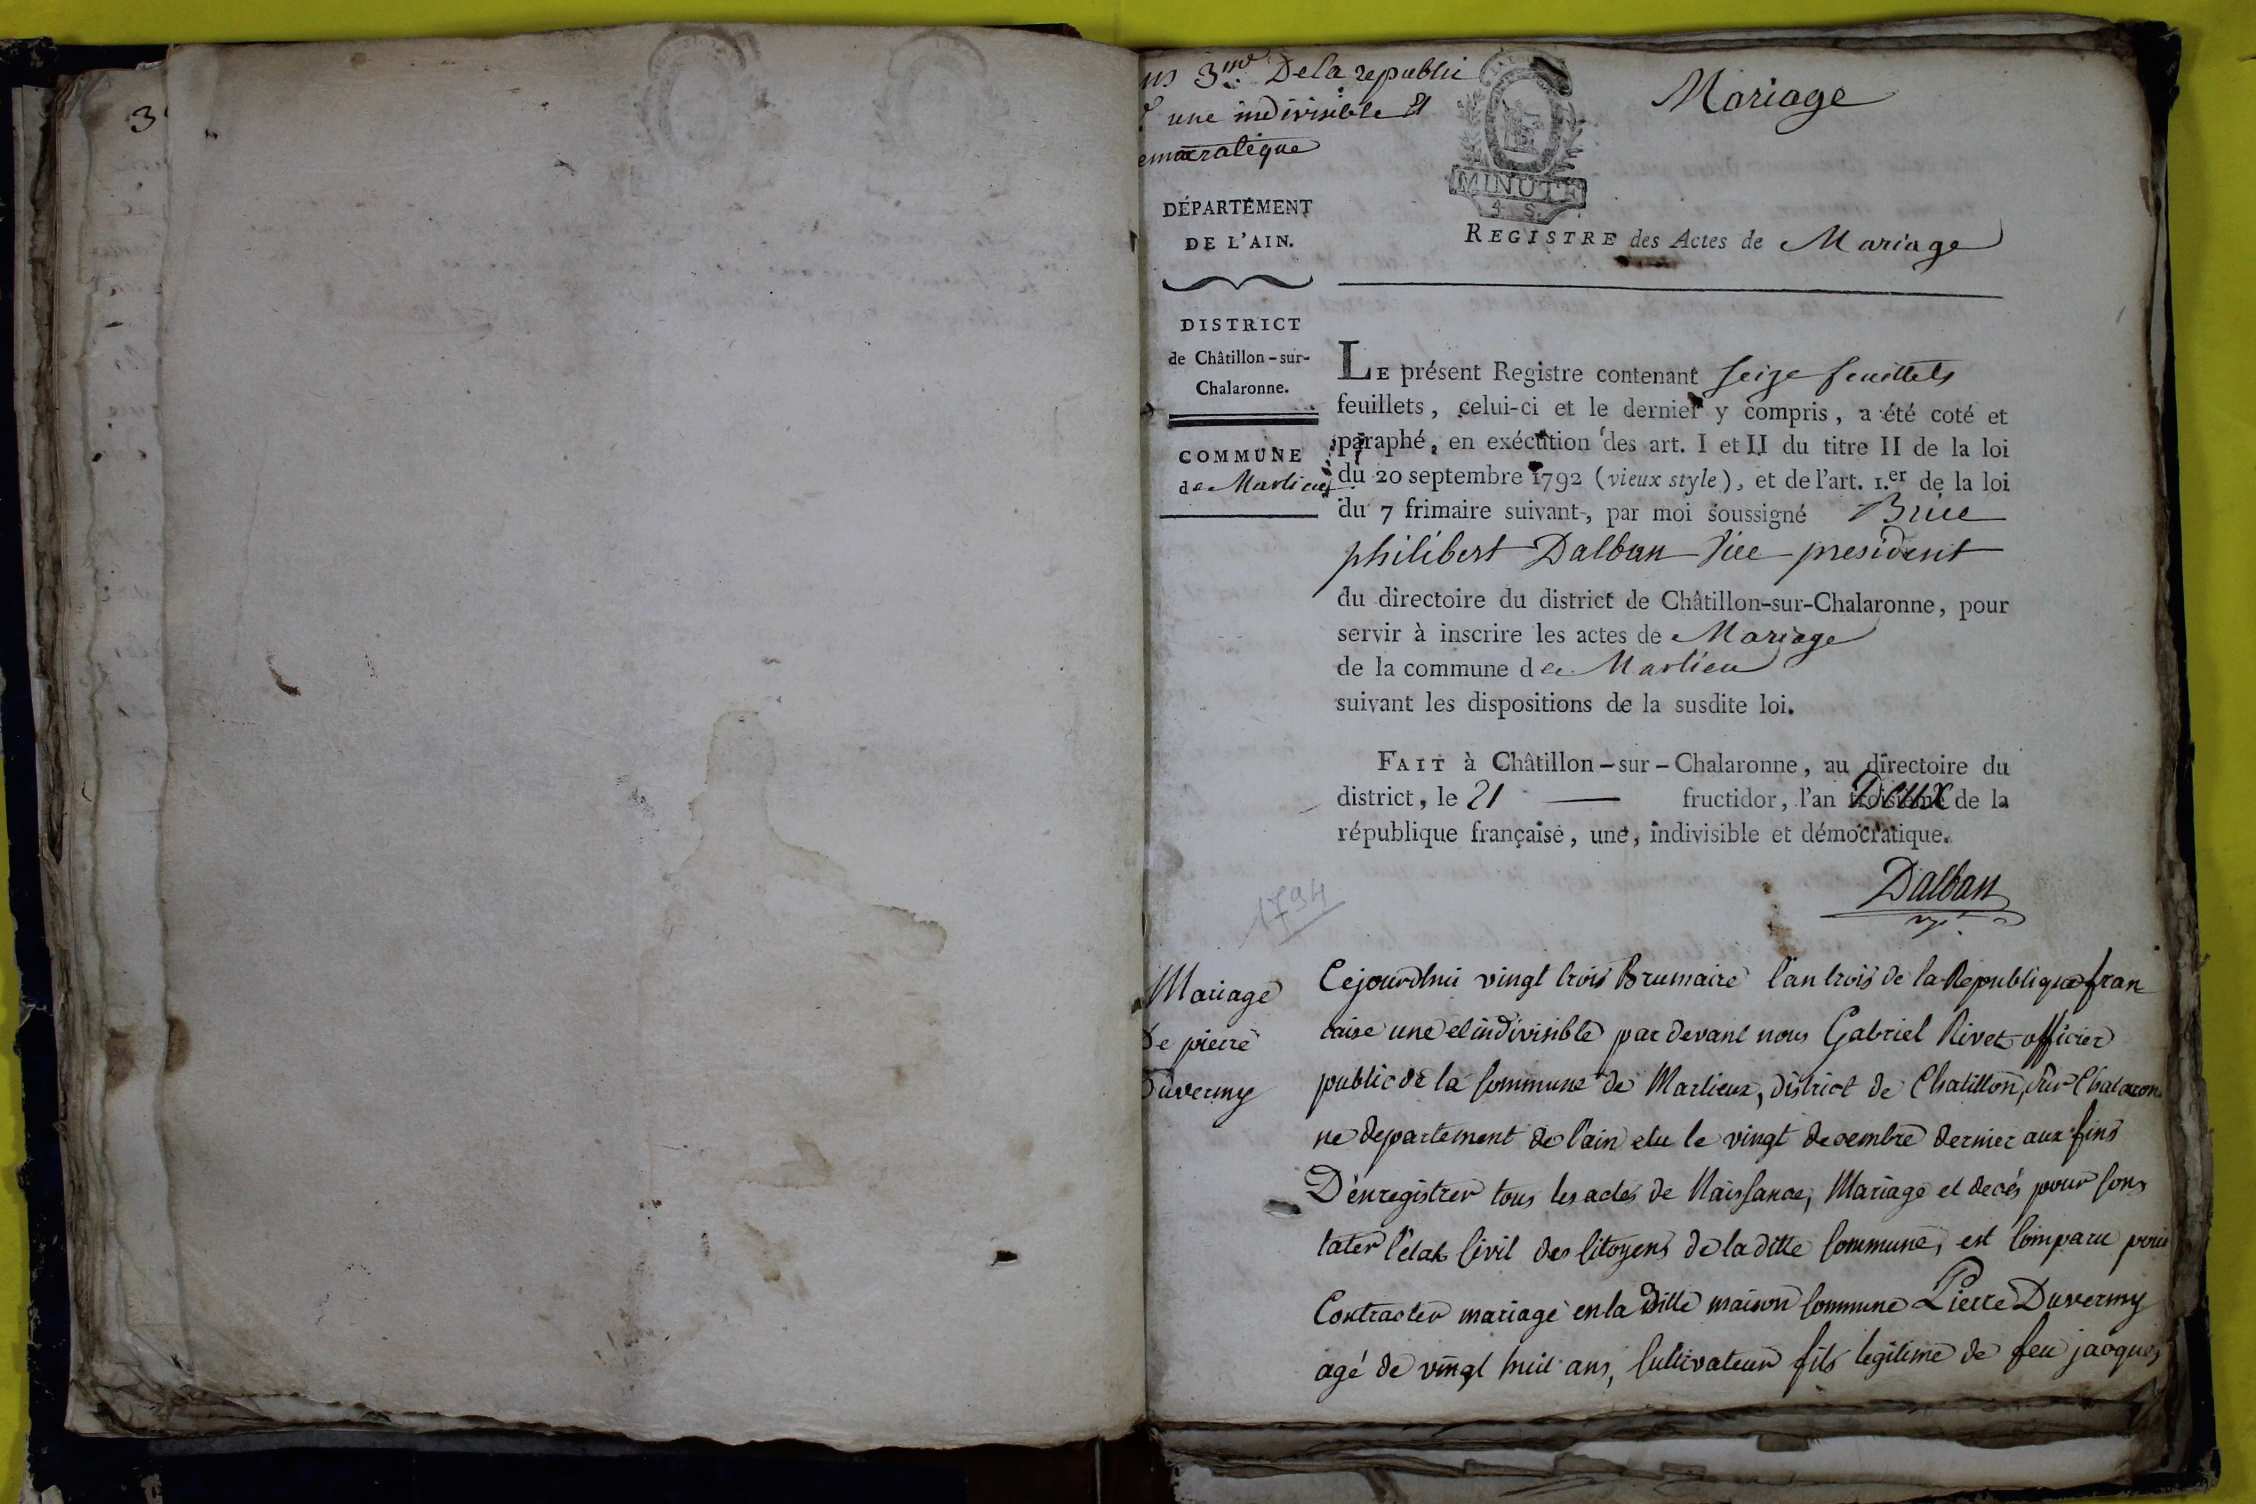 3
3me De la republi
une indivisible Et
emocratique
Mariage
MINUTE
4 S.
DÉPARTEMENT
DE L'AIN.
REGISTRE des Actes de Mariage
DISTRICT
de Châtillon-sur-
Chalaronne.
COMMUNE
de Marlieux
LE présent Registre contenant seize feuillets
feuillets, celui-ci et le dernier y compris, a été coté et
paraphé, en exécution des art. I et II du titre II de la loi
du 20 septembre 1792 (vieux style), et de l'art. 1.er de la loi
du 7 frimaire suivant, par moi soussigné Brice
philibert Dalban Vice president
du directoire du district de Châtillon-sur-Chalaronne, pour
servir à inscrire les actes de Mariage
de la commune de Marlieu
suivant les dispositions de la susdite loi.
FAIT à Châtillon-sur-Chalaronne, au directoire du
district, le 21 fructidor, l'an Deux de la
république française, une, indivisible et démocratique.
Dalban
1794
Mariage
De pierre
Duvermy
Cejourdhui vingt trois Brumaire l'an trois de la Republique fran
caise une et indivisible par devant nous Gabriel Rivet officier
public de la Commune de Marlieux, district de Chatillon, sur Chalaron
ne departement de l'ain elu le vingt decembre dernier aux fins
D'enregistrer tous les actes de Naissance, Mariage et decés pour Cons
tater l'état Civil des Citoyens de la ditte Commune, est Comparu pour
Contracter mariage en la ditte maison Commune Pierre Duvermy
agé de vingt huit ans, Cultivateur fils legitime de feu jacques